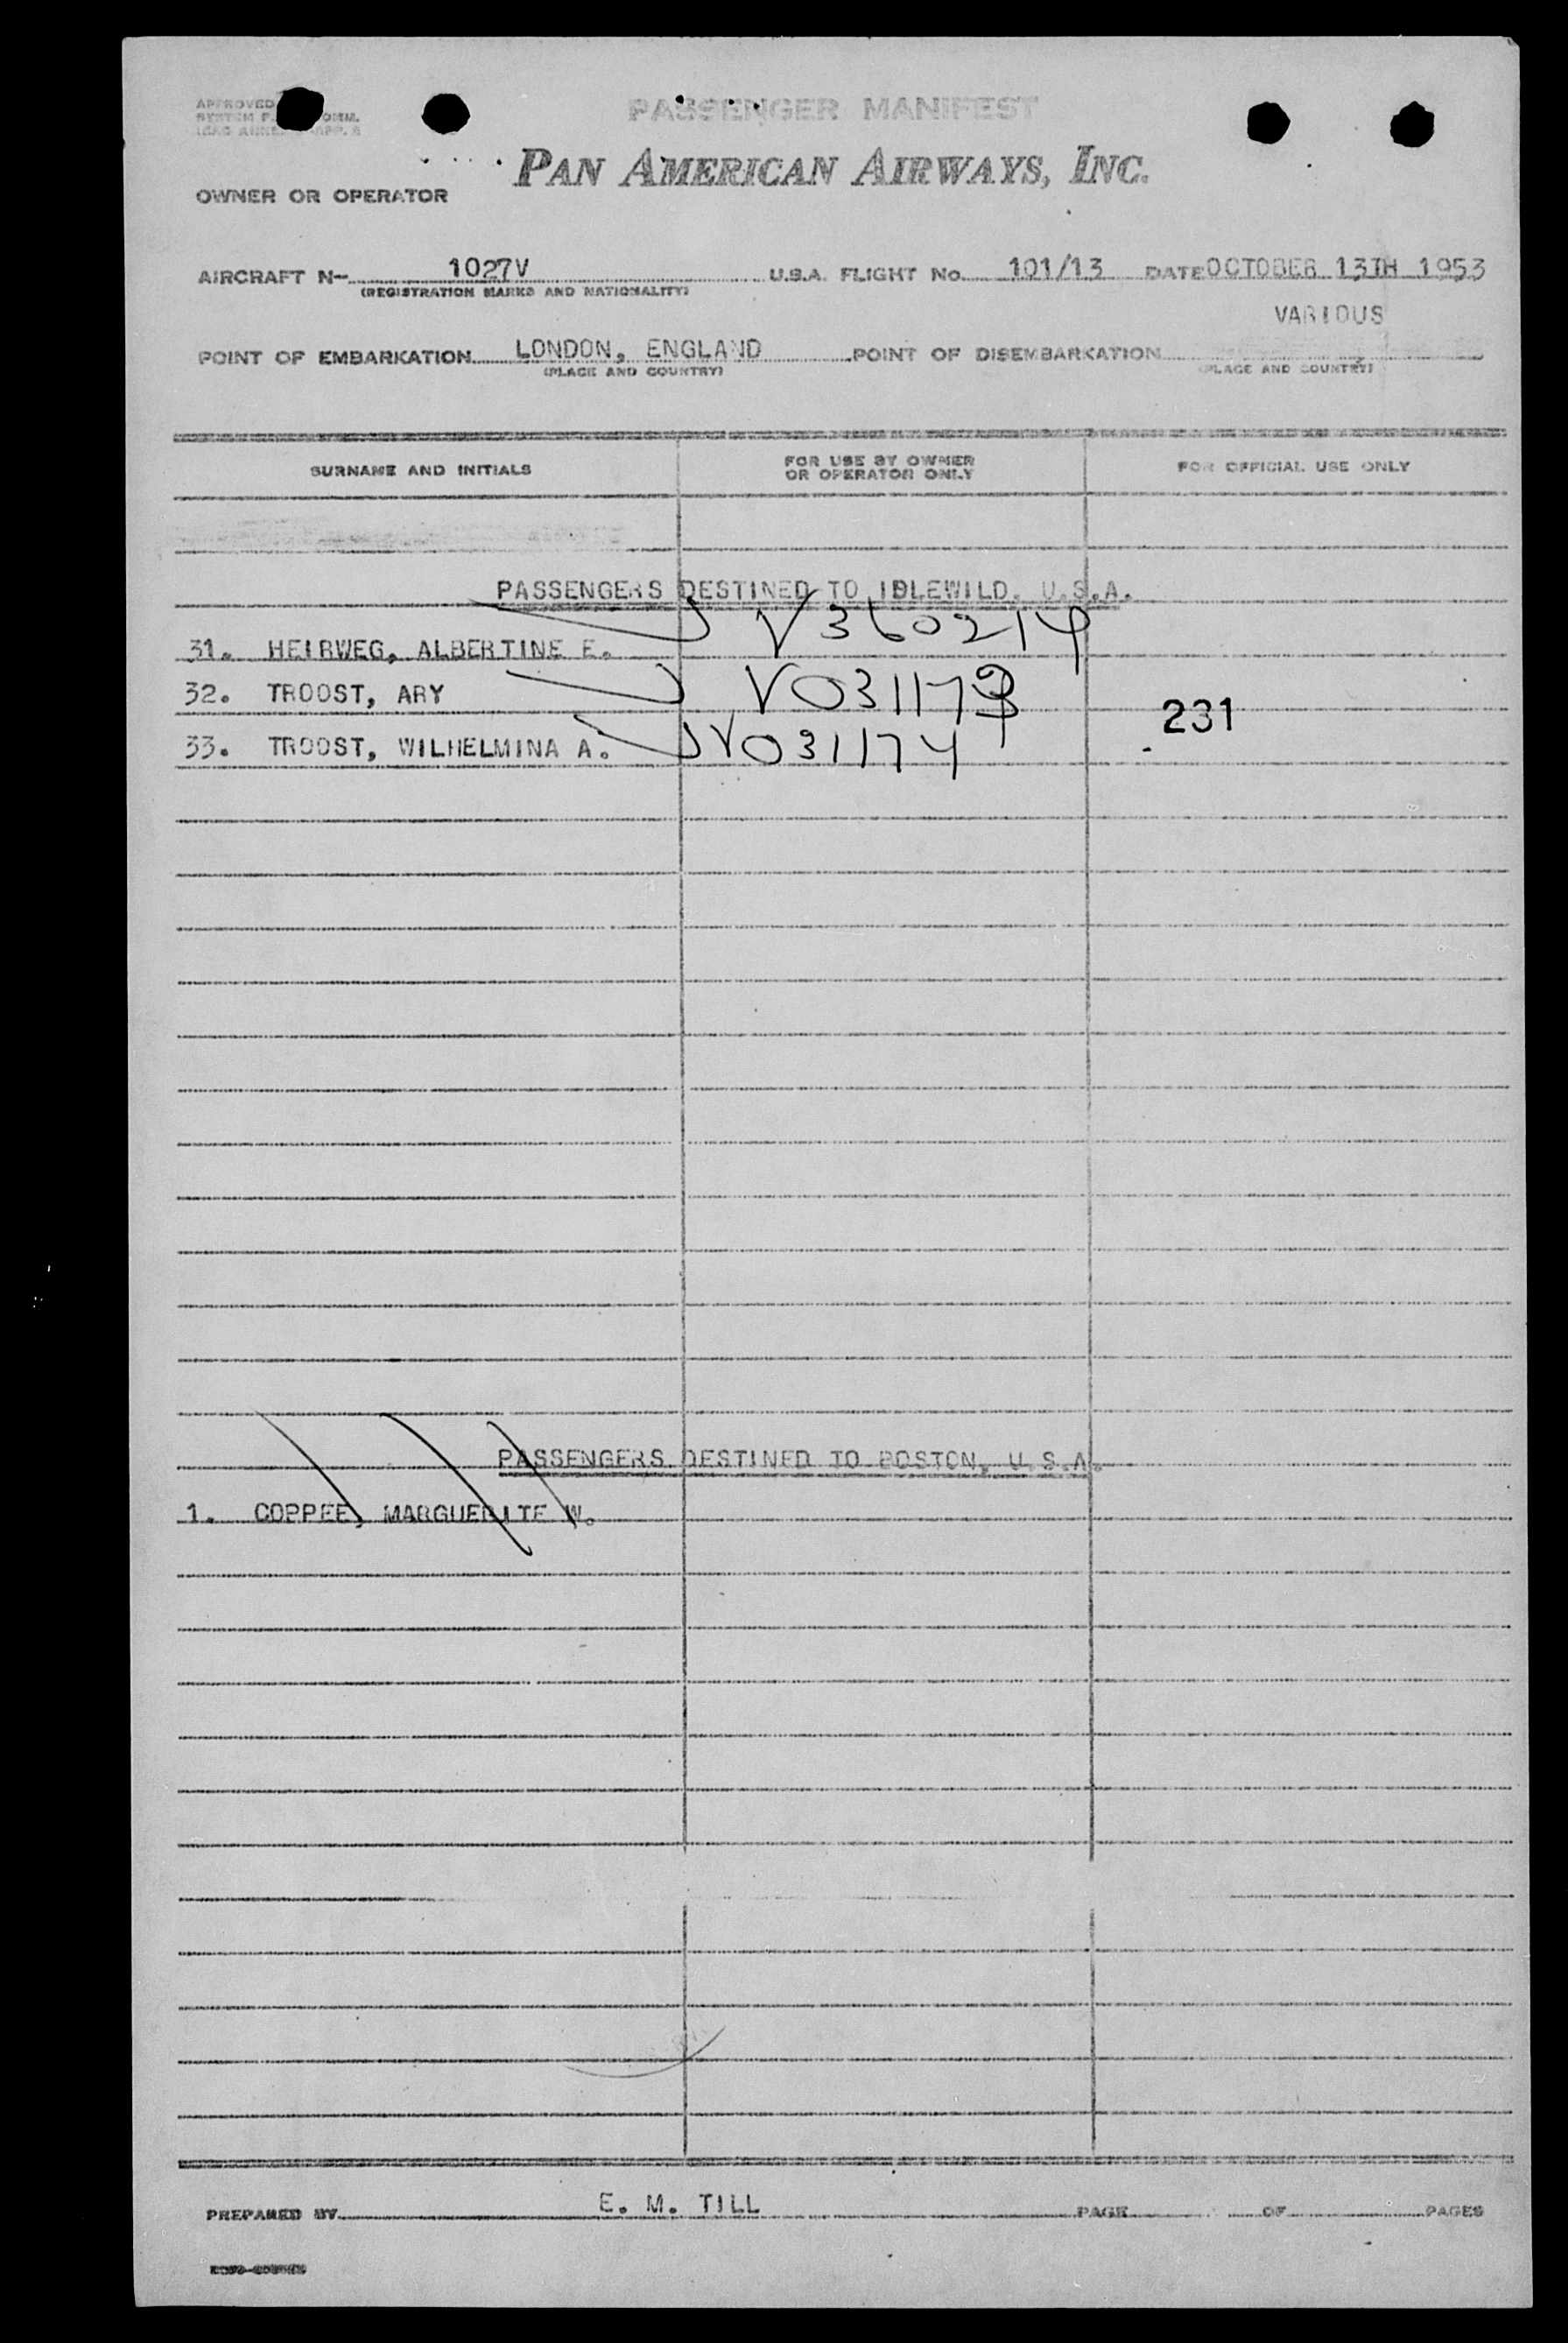 PASSENGER MANIFEST
APPROVED
OWNER OR OPERATOR PAN AMERICAN AIRWAYS, INC.
AIRCRAFT N- 1027V U.S.A. FLIGHT No. 101/13 DATE OCTOBER 13TH 1953
(REGISTRATION MARKS AND NATIONALITY)
VARIOUS
POINT OF EMBARKATION LONDON, ENGLAND POINT OF DISEMBARKATION
(PLACE AND COUNTRY) (PLACE AND COUNTRY)
SURNAME AND INITIALS FOR USE BY OWNER OR OPERATOR ONLY FOR OFFICIAL USE ONLY
PASSENGERS DESTINED TO IDLEWILD, U.S.A.
31. HEIRWEG, ALBERTINE E. V360214
32. TROOST, ARY V031173
231
33. TROOST, WILHELMINA A. V031174
PASSENGERS DESTINED TO BOSTON, U.S.A.
1. COPPEE, MARGUERITE W.
PREPARED BY E. M. TILL PAGE OF PAGES